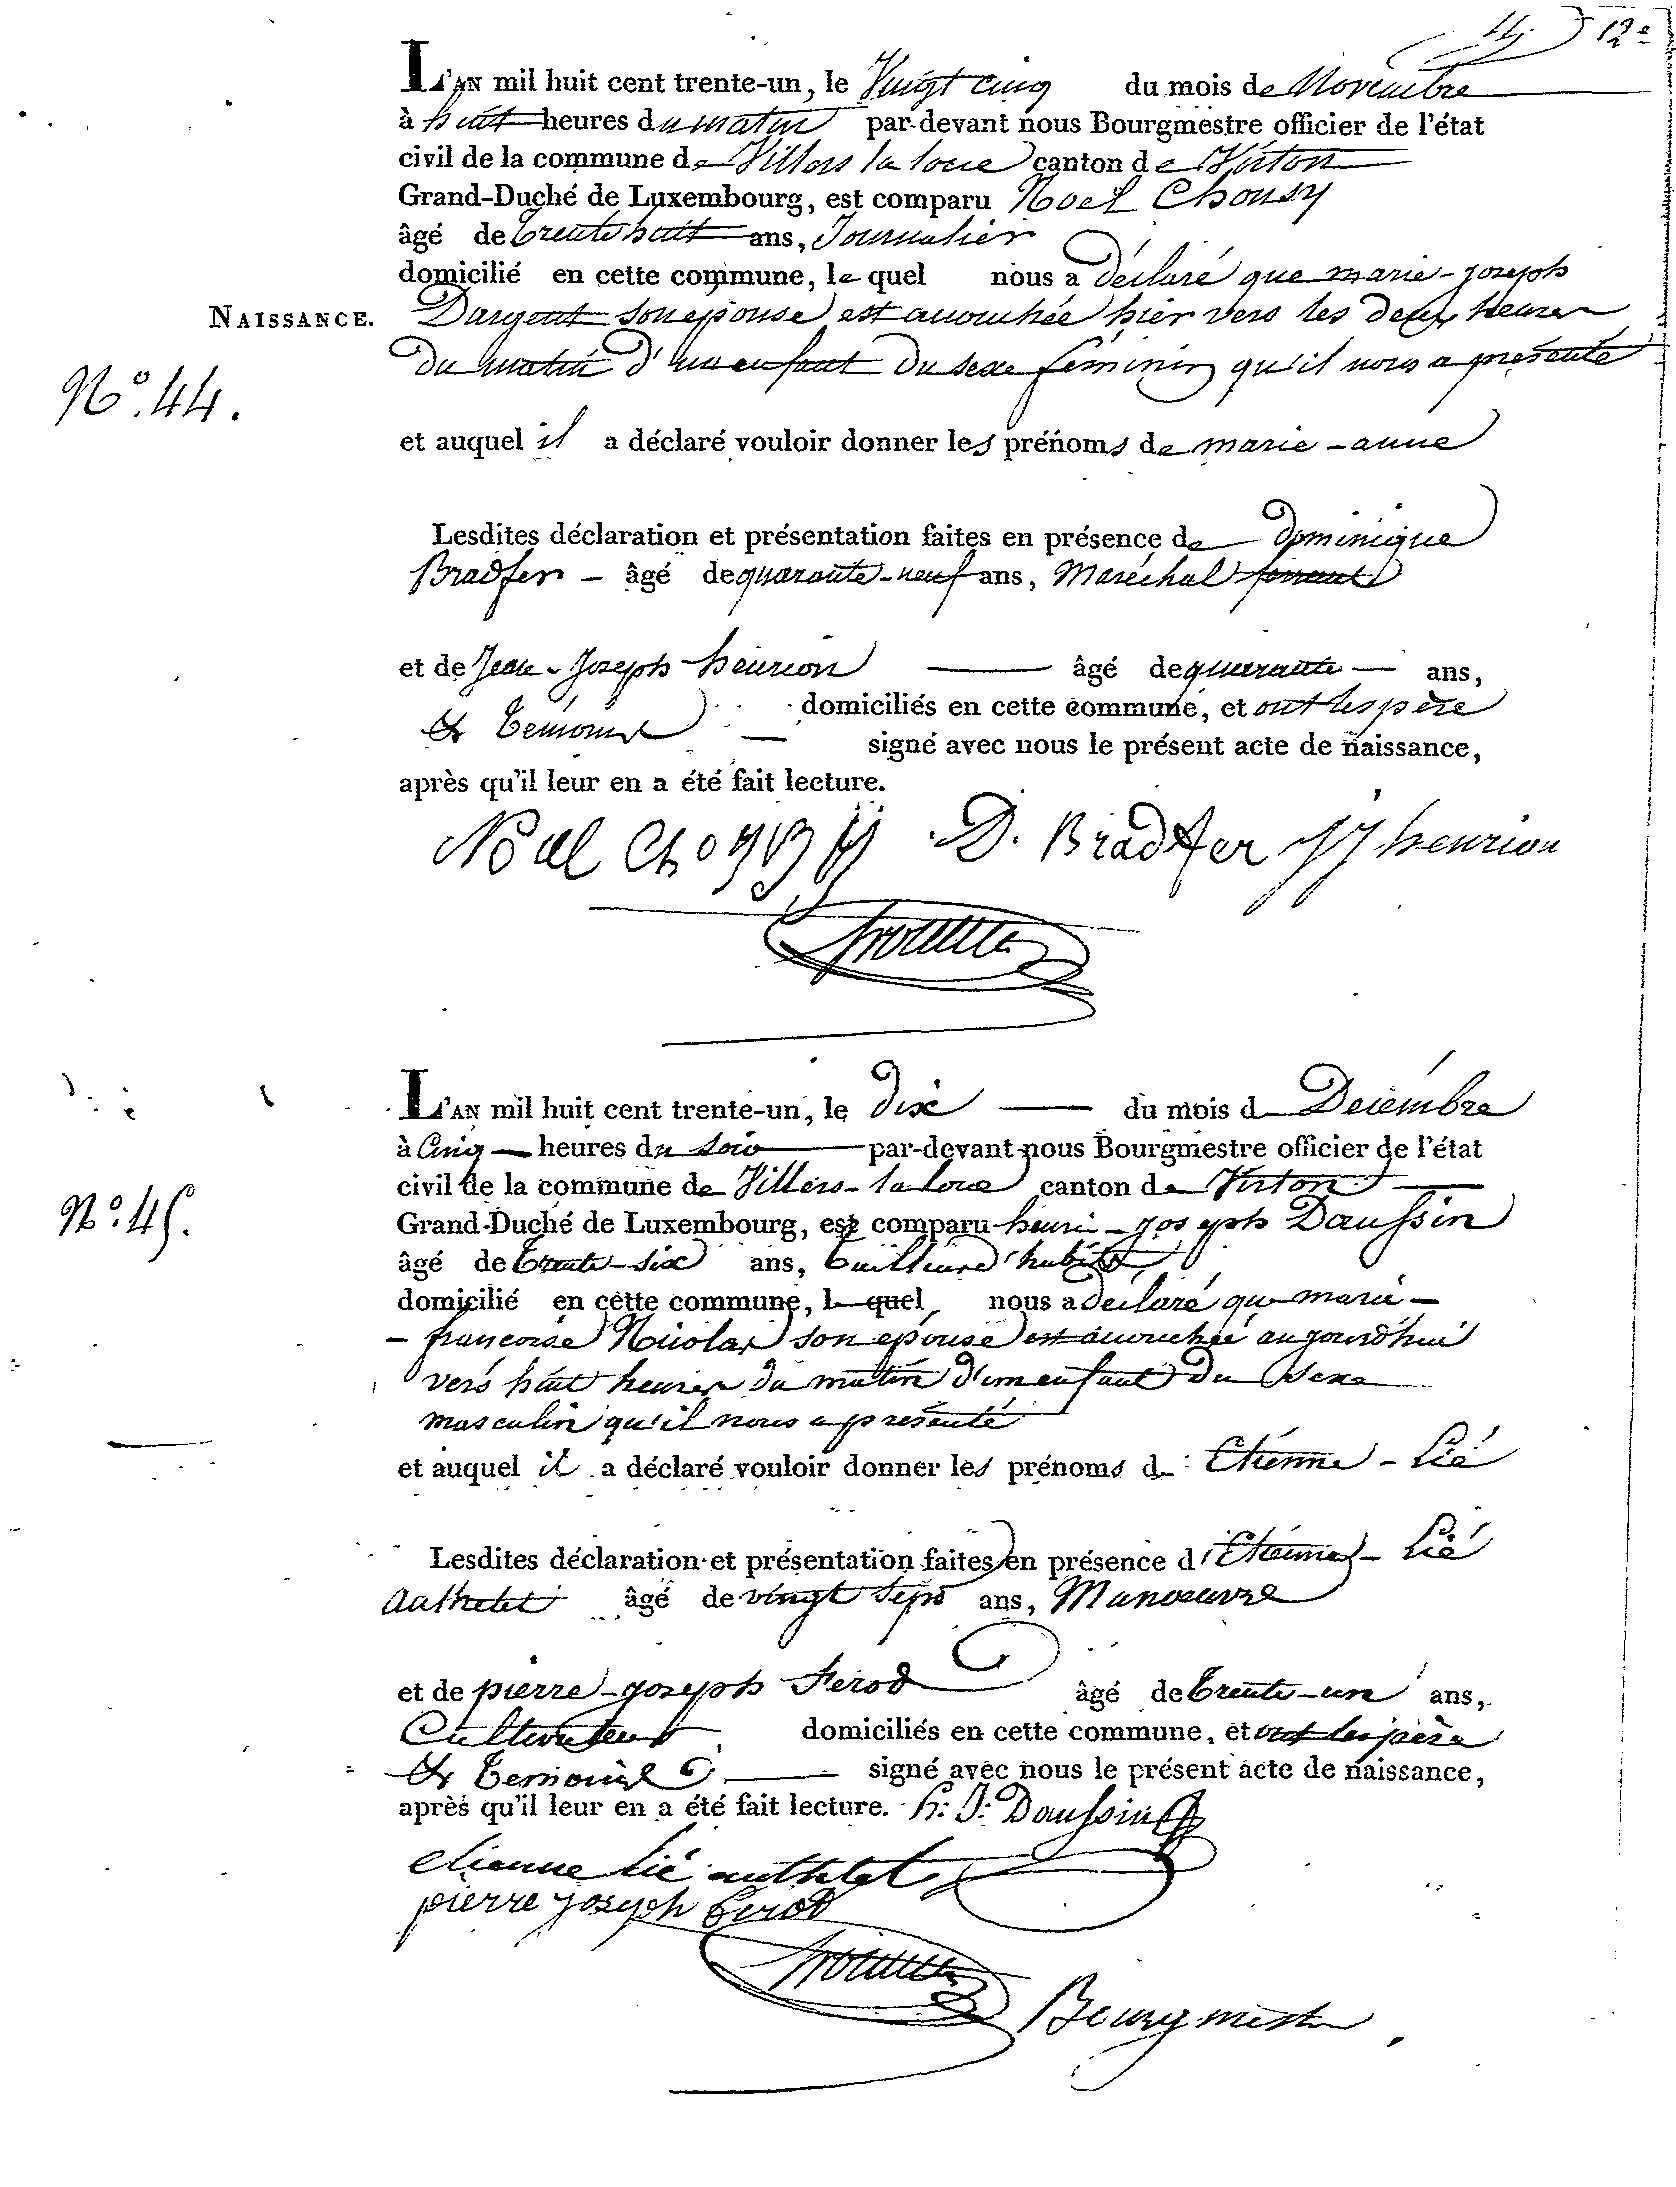 12e
L'AN mil huit cent trente-un, le Vingt cinq du mois de Novembre
à huit heures du matin par-devant nous Bourgmestre officier de l'état
civil de la commune de Villers la loue canton de Virton
Grand-Duché de Luxembourg, est comparu Noel Chonsy
âgé de trente huit ans, Journalier
domicilié en cette commune, le quel nous a déclaré que marie-joseph
NAISSANCE. Dargent son epouse est accouchée hier vers les deux heures
du matin d'un enfant du sexe féminin qu'il nous a presenté
No. 44.
et auquel il a déclaré vouloir donner les prénoms de marie-anne
Lesdites déclaration et présentation faites en présence de Dominique
Bradfer - âgé de quarante-neuf ans, Maréchal ferrant
et de Jean-Joseph henrion âgé de quarante ans,
domiciliés en cette commune, et ont les père
& temoins signé avec nous le présent acte de naissance,
après qu'il leur en a été fait lecture.
Noel D. Bradfer JJ henrion
L'AN mil huit cent trente-un, le dix du mois d Decembre
à Cinq heures du soir par-devant nous Bourgmestre officier de l'état
civil de la commune de Villers-la loue canton de Virton
No. 45.
Grand-Duché de Luxembourg, est comparu henri-joseph Daussin
âgé de trente-six ans, tailleur d'habits
domicilié en cette commune, le quel nous a declaré que marie-
-francoise Nicolas son epouse est accouchée aujourd'hui
vers huit heures du matin d'un enfant du sexe
masculin qu'il nous a presenté
et auquel il a déclaré vouloir donner les prénoms d Etienne-Lié
Lesdites déclaration et présentation faites en présence d'Etienne-Lié
authelet âgé de vingt sept ans, Manoeuvre
et de pierre-joseph ferod âgé de trente-un ans,
Cultivateur domiciliés en cette commune, et ont les père
& temoins signé avec nous le présent acte de naissance,
après qu'il leur en a été fait lecture. h: J: Daussin
etienne lié authelet
pierre joseph ferod
Bourgmestre